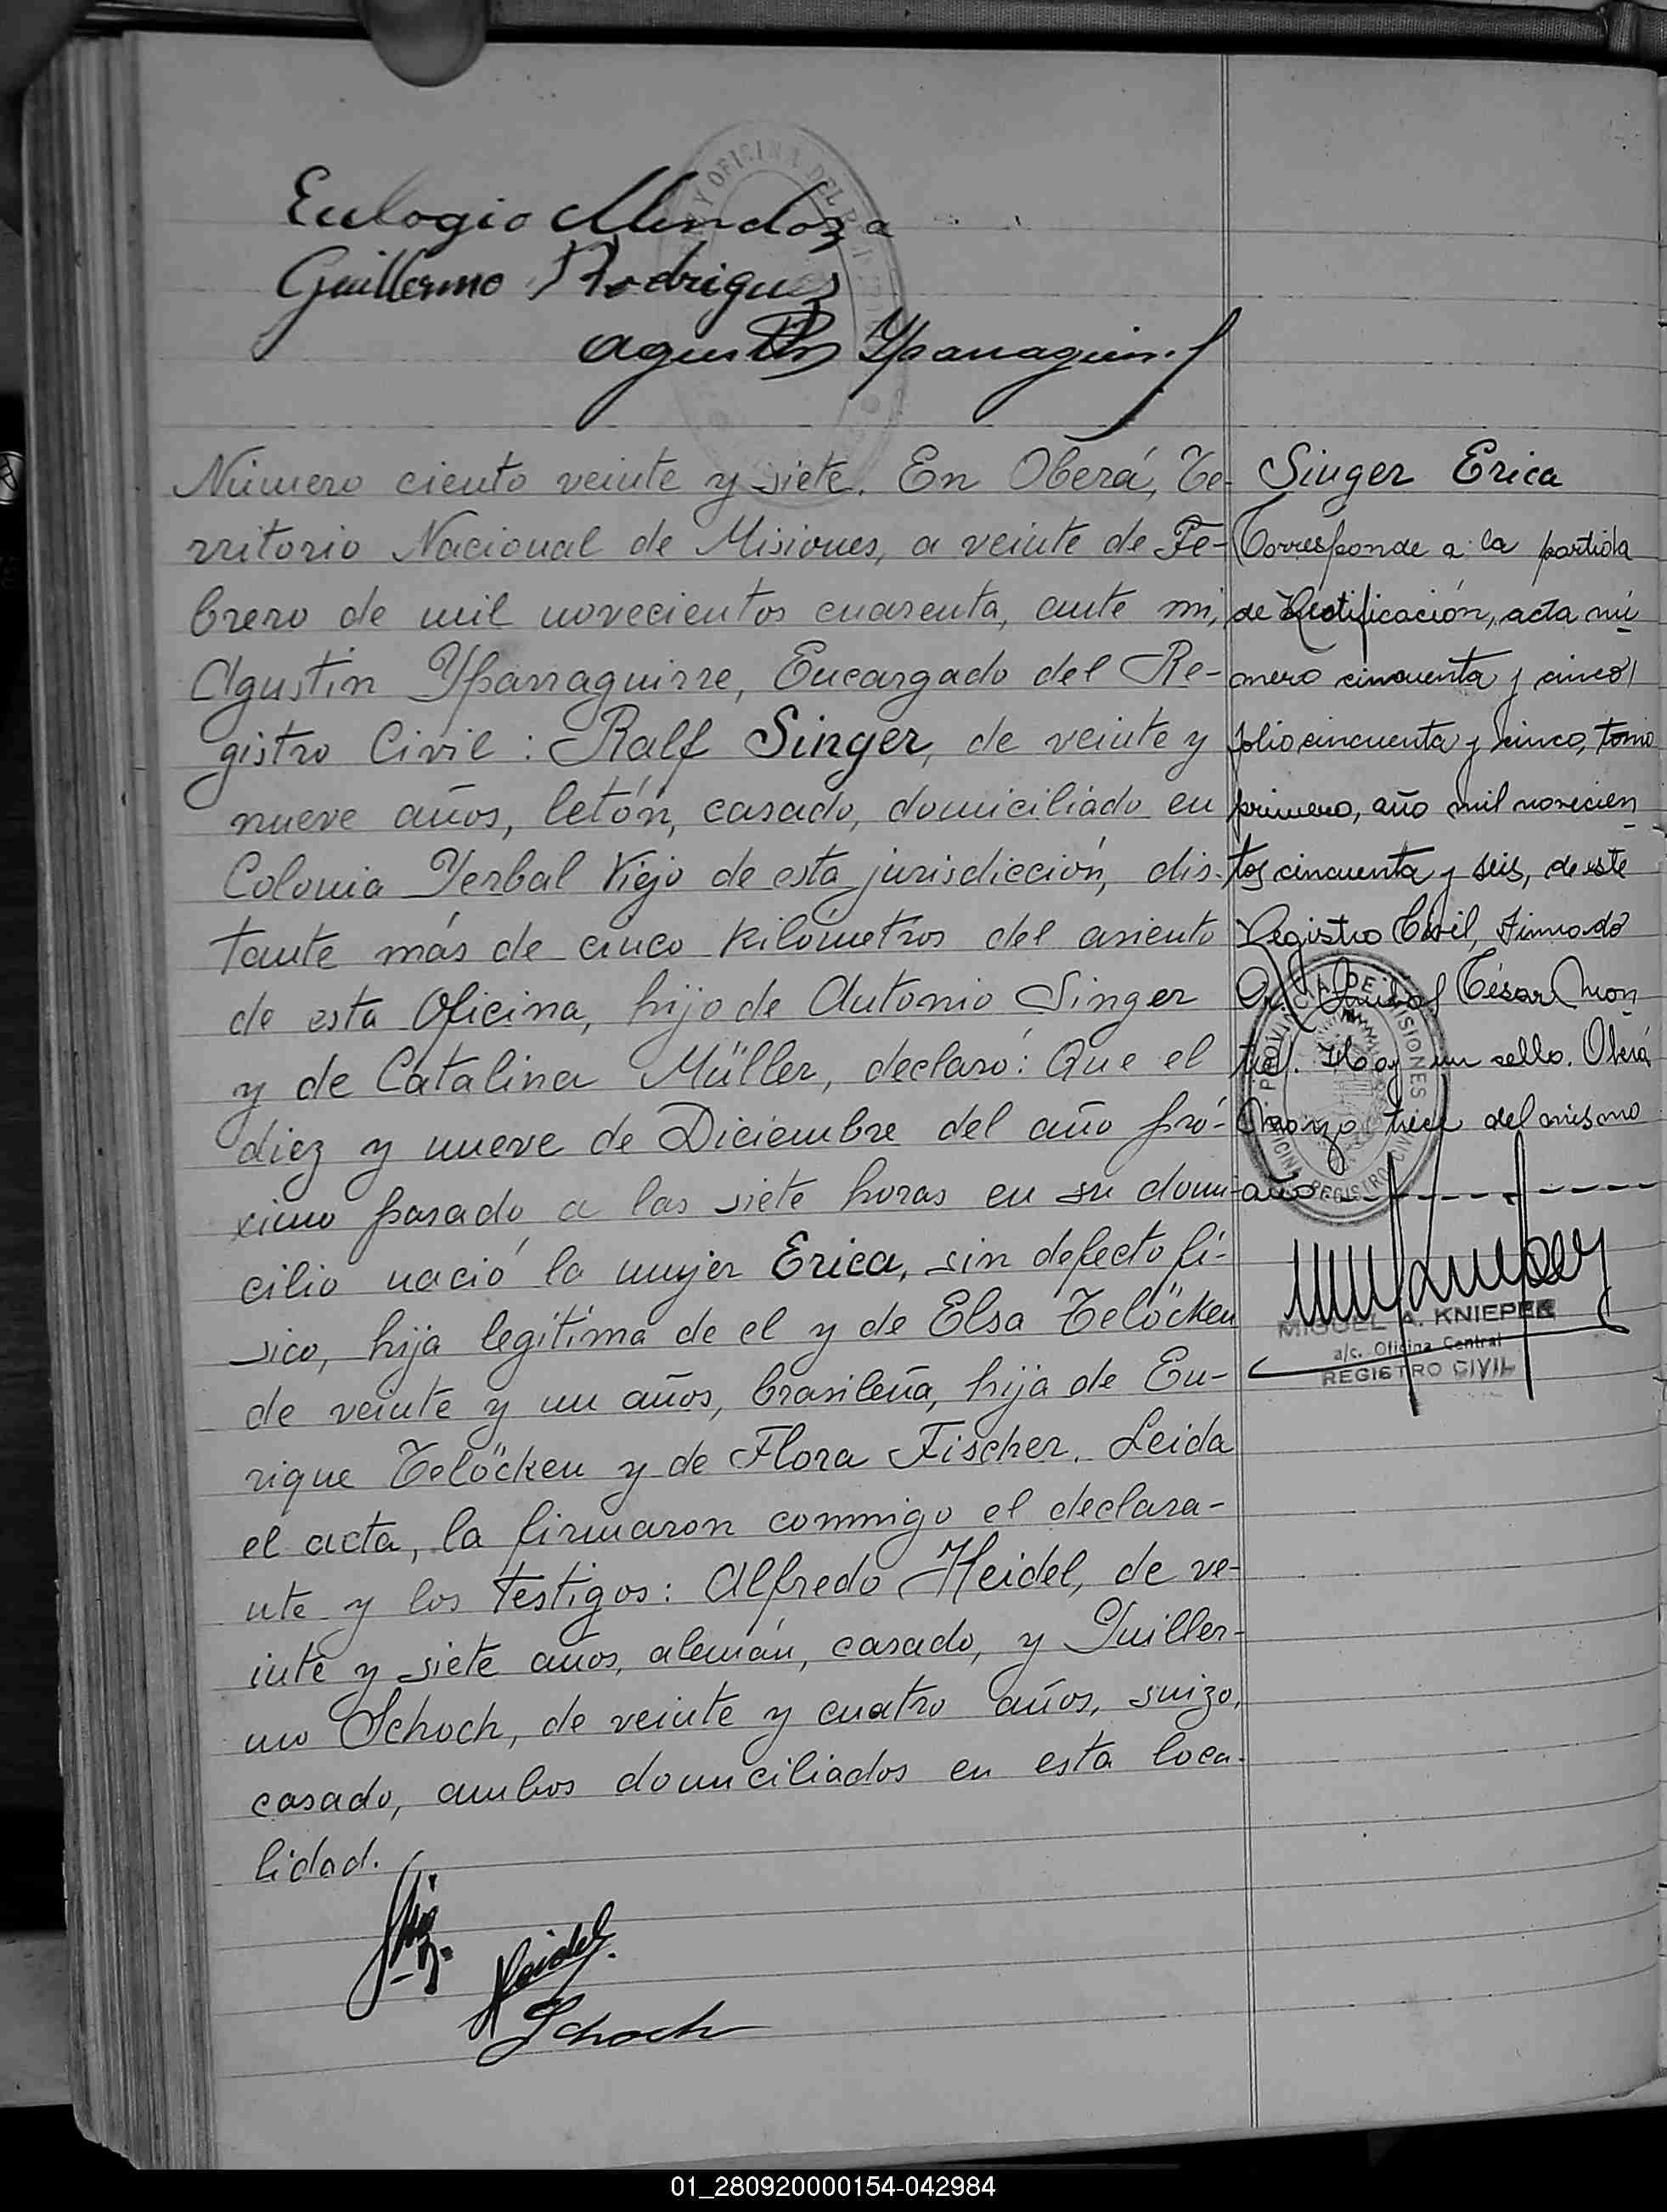 Eulogio Mendoza
Guillermo Rodriguez
Agustin Yparraguirre
Número ciento veinte y siete. En Oberá, Te-
rritorio Nacional de Misiones, a veinte de Fe-
brero de mil novecientos cuarenta, ante mi,
Agustin Yparraguirre, Encargado del Re-
gistro Civil: Ralf Singer, de veinte y
nueve años, letón, casado, domiciliado en
Colonia Yerbal Viejo de esta jurisdicción, dis-
tante más de cinco kilómetros del asiento
de esta Oficina, hijo de Antonio Singer
y de Catalina Müller, declaró: Que el
diez y nueve de Diciembre del año pró-
ximo pasado, a las siete horas en su domi-
cilio nació la mujer Erica, sin defecto fí-
sico, hija legítima de el y de Elsa Telöcken
de veinte y un años, brasileña, hija de En-
rique Telöcken y de Flora Fischer. Leida
el acta, la firmaron conmigo el declara-
nte y los testigos: Alfredo Heidel, de ve-
inte y siete años, alemán, casado, y Guiller-
mo Schoch, de veinte y cuatro años, suizo,
casado, ambos domiciliados en esta loca-
lidad.
Heidel.
Schoch
Singer Erica
Corresponde a la partida
de Rectificación, acta nú
mero cincuenta y cinco,
folio cincuenta y cinco, tomo
primero, año mil novecien
tos cincuenta y seis, de este
Registro Civil, Firmado
Anibal César Mon
tiel. Hay un sello. Oberá
Marzo trece del mismo
año
PROVINCIA DE MISIONES
OFICINA REGISTRO CIVIL
MIGUEL A. KNIEPER
a/c. Oficina Central
REGISTRO CIVIL
01_280920000154-042984